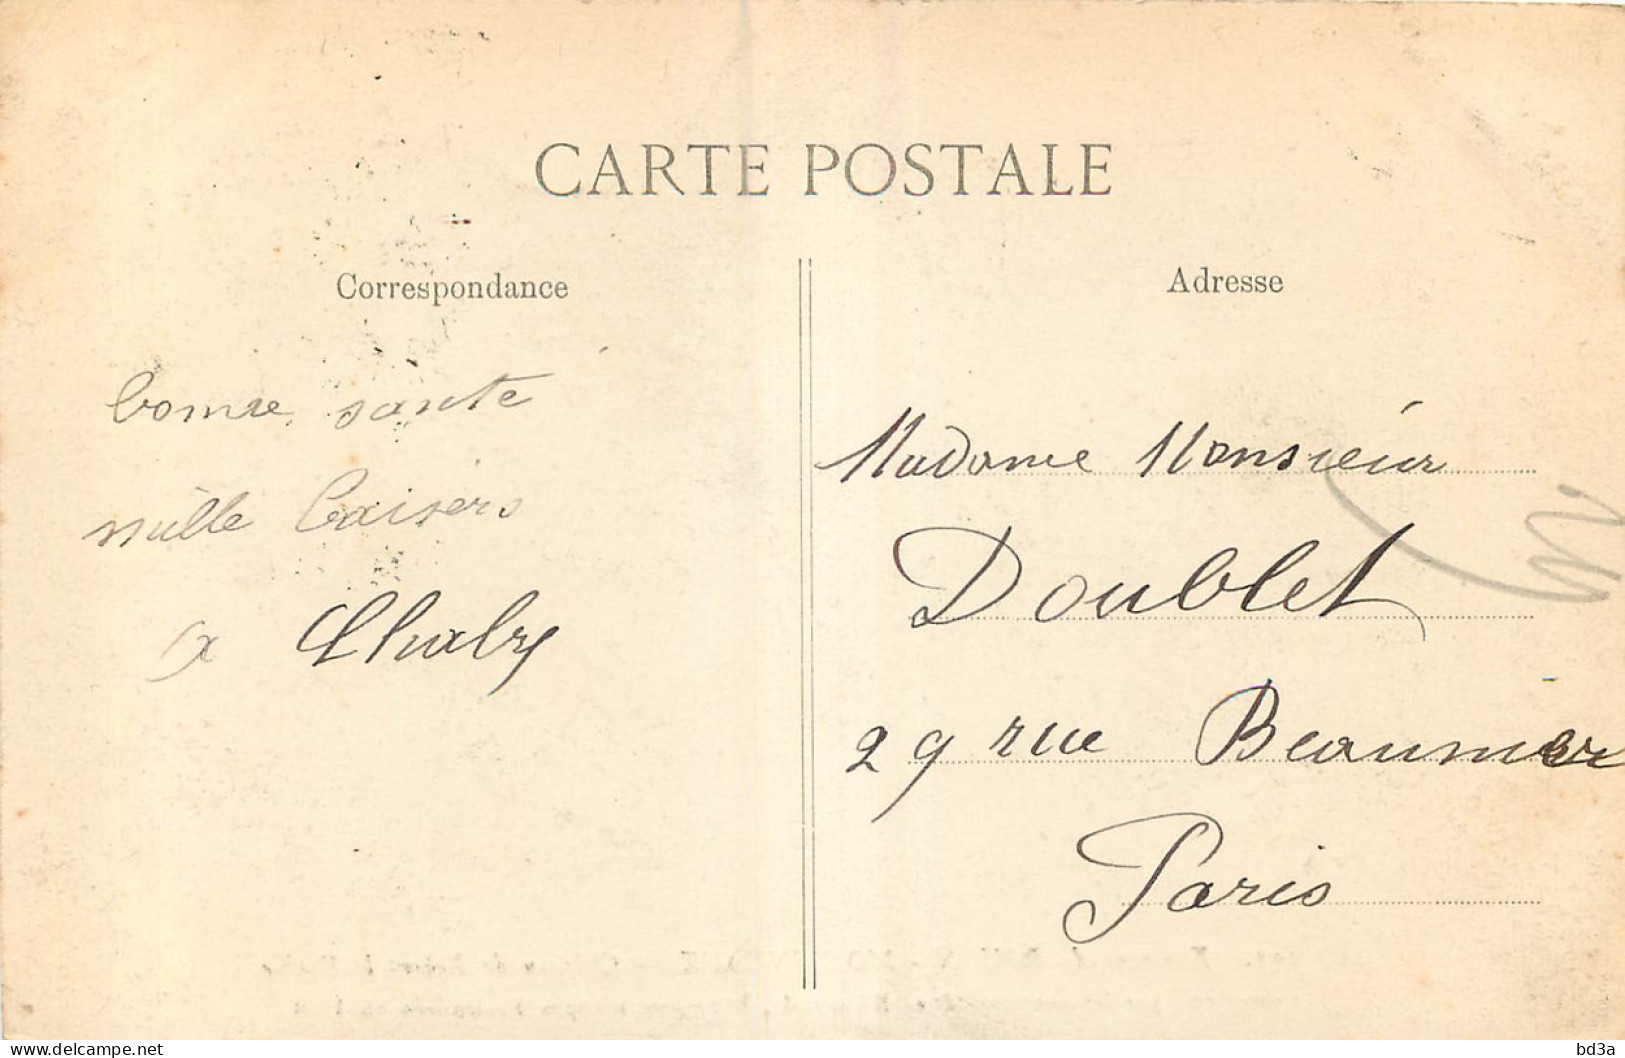 CARTE POSTALE
Correspondance
bonne santé
mille baisers
a Chaby
Adresse
Madame Monsieur
Doublet
29 rue Beaumer
Paris
www.delcampe.net
bd3a